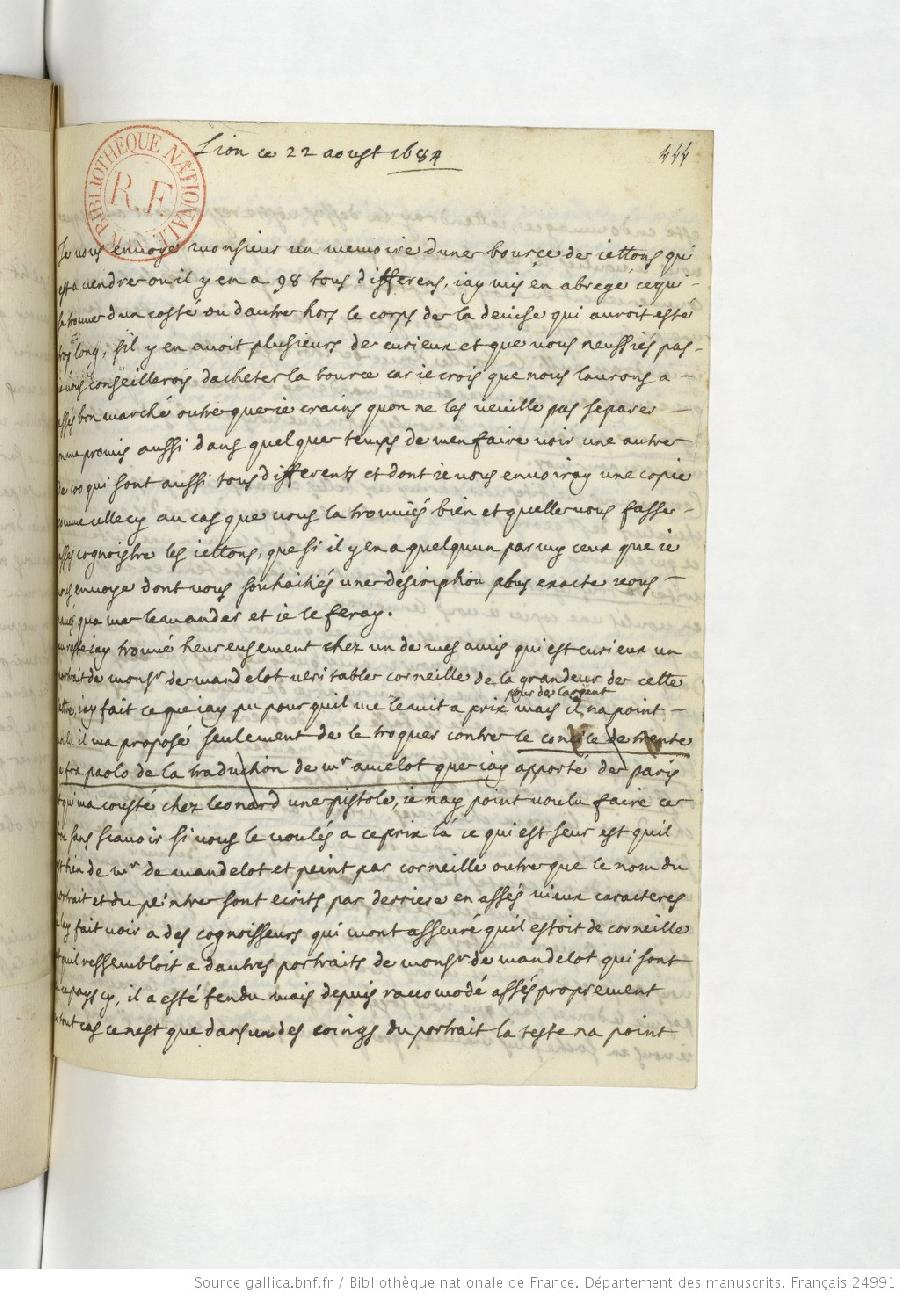 Lion ce 22 aoust 1684
444
BIBLIOTHEQUE NATIONALE
R.F
Je vous envoye monsieur un memoire dune bource de iettons qui
est a vendre ou il y en a 98 tous differens, iay mis en abregé ce qui
se trouve dun costé ou dautre hors le corps de la devise qui auroit esté
trop long, sil y en avoit plusieurs de curieux et que vous neussiés pas
conseillerois dacheter la bource car ie crois que nous laurons a
assés bon marché outre que ie crains quon ne les veuille pas separer
promis aussi dans quelque temps de men faire voir une autre
de 100 qui sont aussi tous differents et dont ie vous envoiray une copie
comme celle cy au cas que vous la trouviés bien et quelle vous fasse
assés cognoistre les iettons, que si il y en a quelquun parmy ceux que ie
vous envoye dont vous souhaitiés une description plus exacte vous
qua me le mander et ie le feray.
iay trouvé heureusement chez un de mes amis qui est curieux un
portrait de monsr de mandelot veritable corneille de la grandeur de cette
lettre, iay fait ce que iay pu pour quil me le mit a prix mais il na point
pour de largent
il ma proposé seulement de le troquer contre le concile de trente
de fra paolo de la traduction de mr amelot que iay apporté de paris
et qui ma cousté chez leonard une pistole, ie nay point voulu faire ce
sans scavoir si vous le voulés a ce prix la ce qui est seur est quil
est bien de mr de mandelot et peint par corneille outre que le nom du
portrait et du peintre sont ecrits par derriere en assés vieux caracteres
fait voir a des cognoisseurs qui mont asseuré quil estoit de corneille
et quil ressembloit a dautres portraits de monsr de mandelot qui sont
pays cy, il a esté fendu mais depuis raccomodé assés proprement
en tout cas ce nest que dans un des coings du portrait la teste na point
Source gallica.bnf.fr / Bibliothèque nationale de France. Département des manuscrits. Français 24991